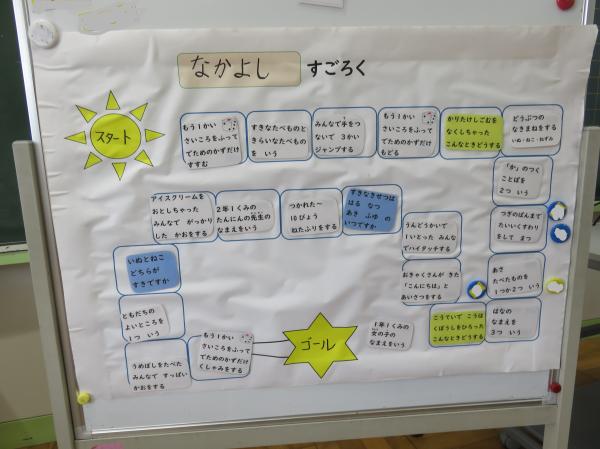 なかよし すごろく
スタート
もう1かい
さいころをふって
でためのかずだけ
すすむ
すきなたべものと
きらいなたべもの
を いう
みんなで手をつ
ないで 3かい
ジャンプする
もう1かい
さいころをふって
でためのかずだけ
もどる
かりたけしごむを
なくしちゃった
こんなときどうする
どうぶつの
なきまねをする
いぬ・ねこ・ねずみ
「か」のつく
ことばを
2つ いう
つぎのばんまで
たいいくすわり
をして まつ
あさ
たべたものを
1つか2つ いう
はなの
なまえを
3つ いう
こうていで こうは
くぼうしをひろった
こんなときどうする
1年1くみの
女の子の
なまえをいう
おきゃくさんが きた
「こんにちは」と
あいさつをする
うんどうかいで
1いとった みんな
でハイタッチする
すきなきせつは
はる なつ
あき ふゆ の
いつですか
つかれた〜
10びょう
ねたふりをする
2年1くみの
たんにんの先生の
なまえをいう
アイスクリームを
おとしちゃった
みんなで がっかり
した かおをする
いぬとねこ
どちらが
すきですか
ともだちの
よいところを
1つ いう
うめぼしをたべた
みんなで すっぱい
かおをする
もう1かい
さいころをふって
でためのかずだけ
くしゃみをする
ゴール